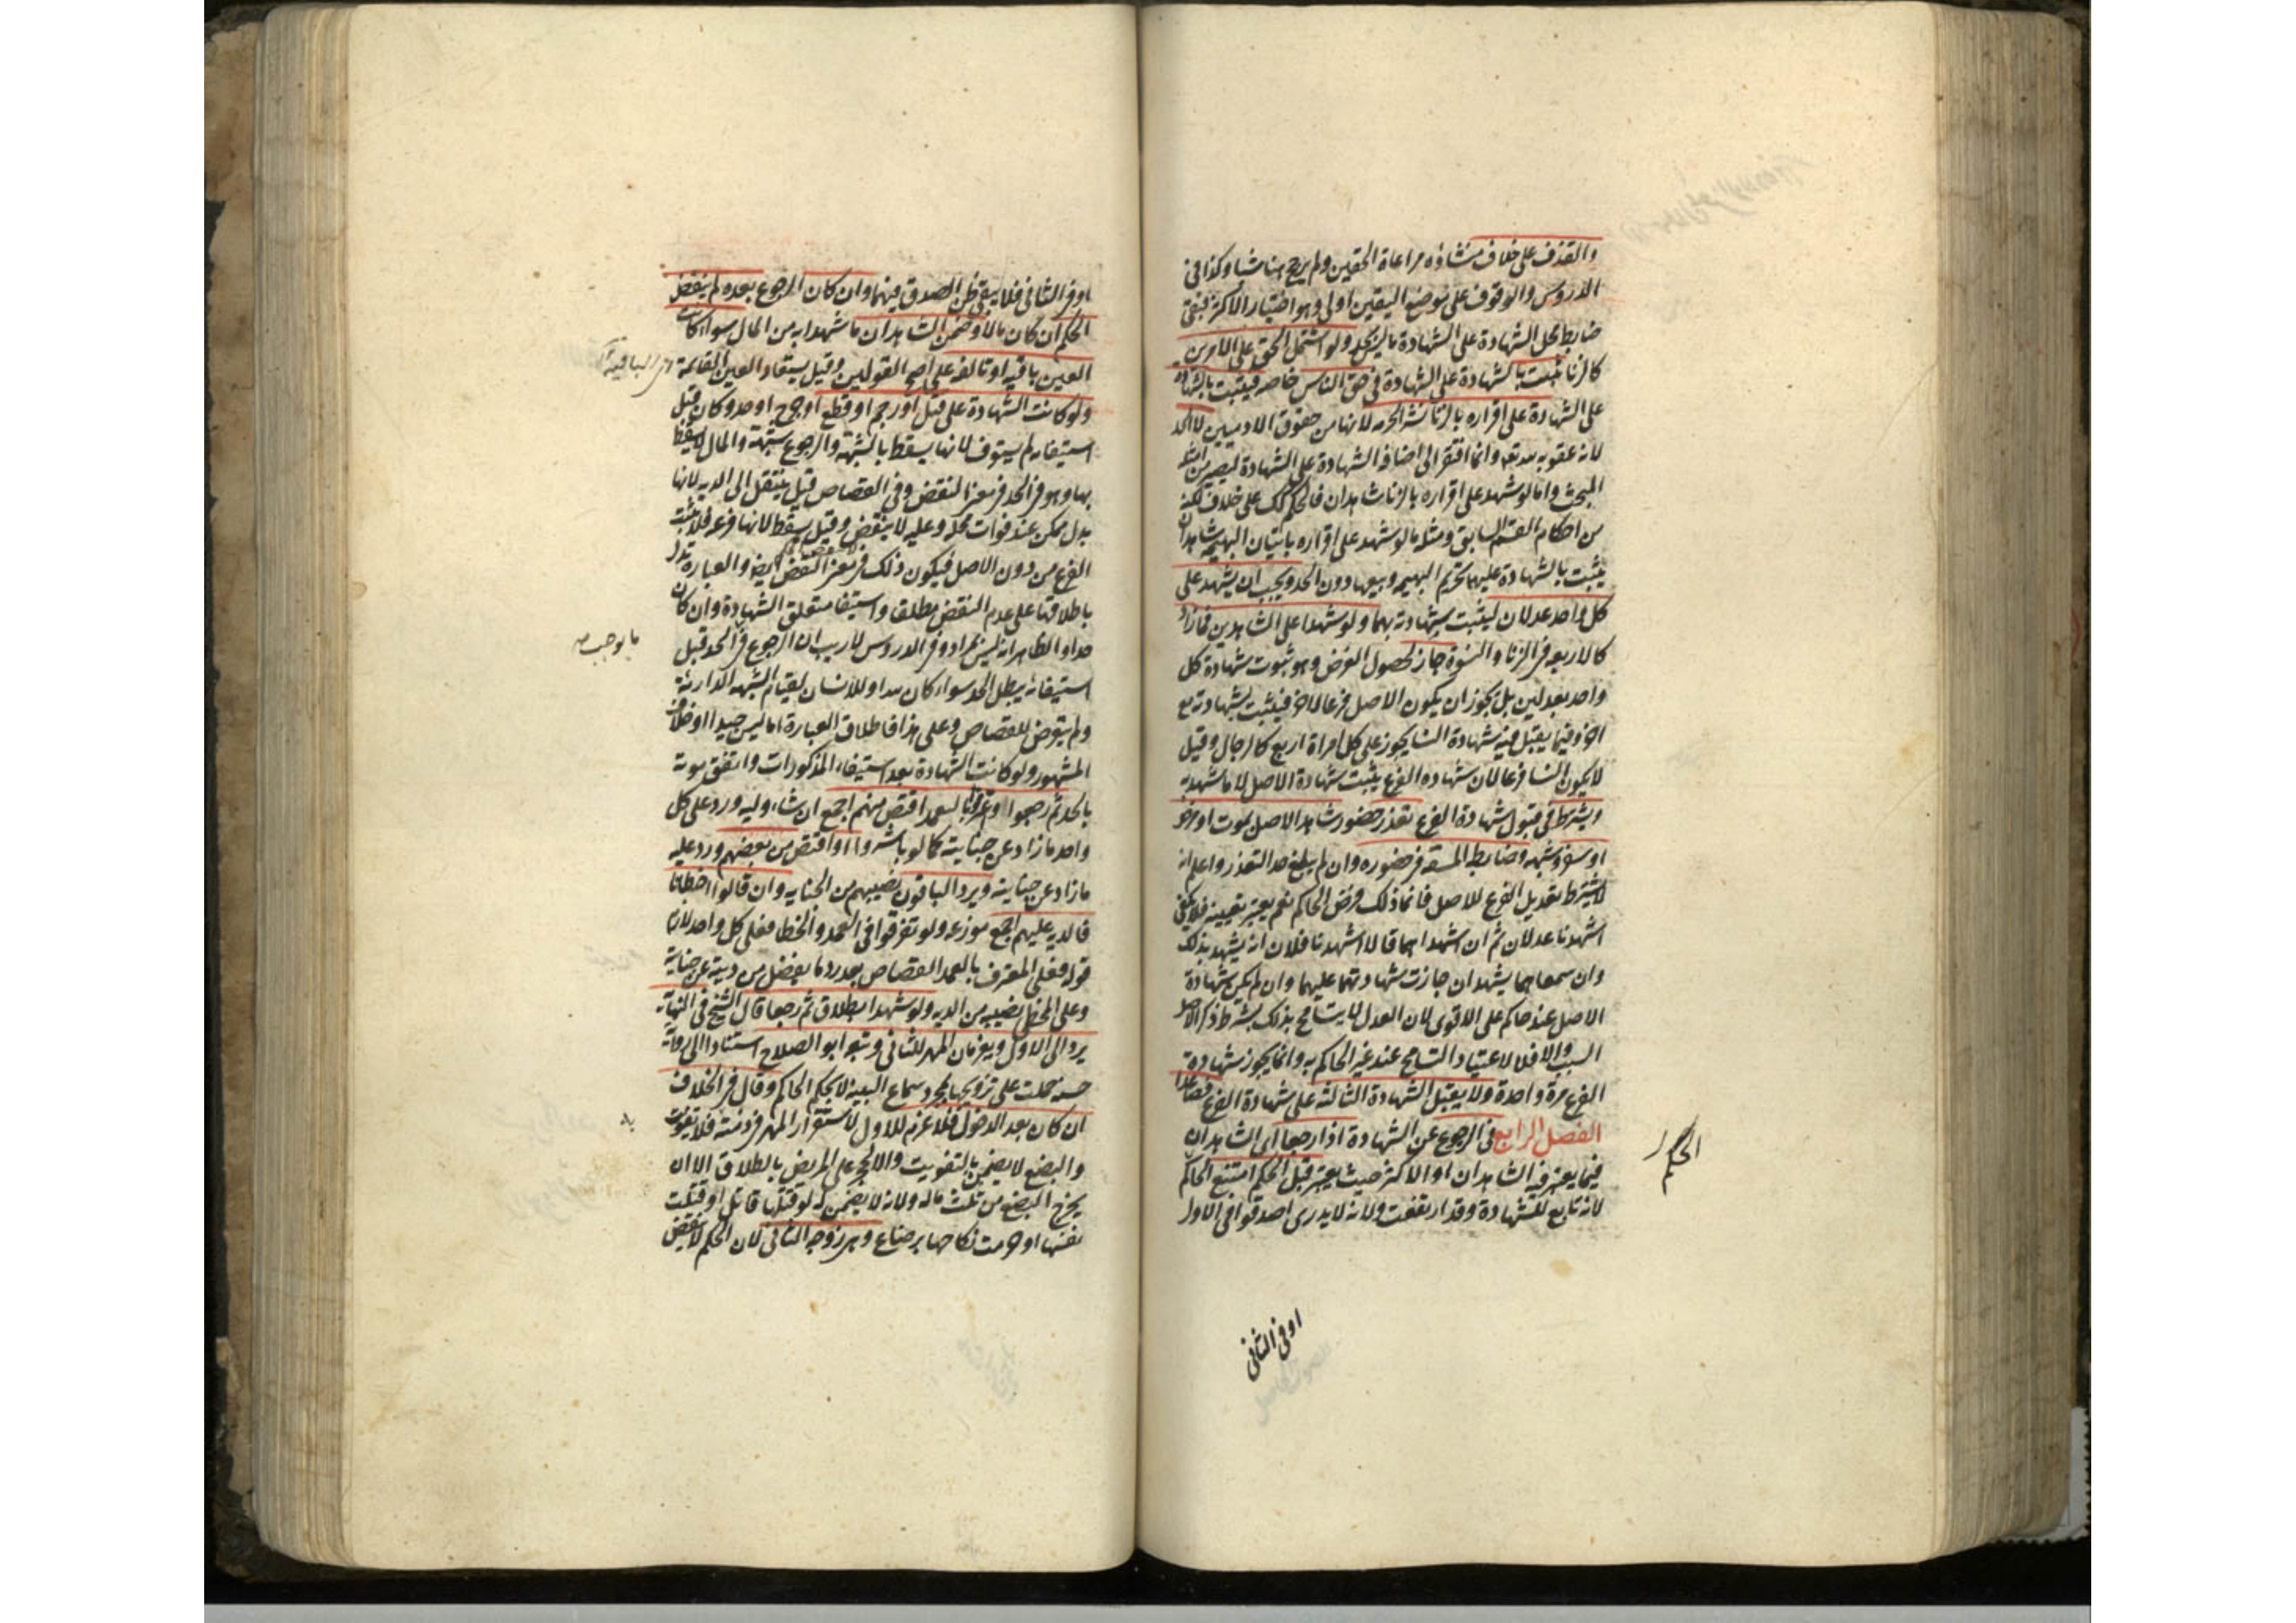 والقذف على خلاف منشاؤه مراعاة الحقين ولم يرجح هنا شيا وكذا في
الدروس والوقوف على موضع اليقين اولى وهو اختيار الاكثر فبقي
ضابط محل الشهادة على الشهادة ما ليس بحد ولو اشتمل الحق على الامرين
كالزنا يثبت بالشهادة على الشهادة في حق الناس خاصه فيثبت بالشهادة
على الشهادة على اقراره بالزنا نشر الحرمه لانها من حقوق الادميين لا الحد
لانه عقوبه لله تعالى وانما افتقر الى اضافه الشهادة على الشهادة ليصير من امثلة
المبحث واما لو شهد على اقراره بالزنا شاهدان فالحكم كك على خلاف لكنه
من احكام القسم السابق ومثله ما لو شهد على اقراره باتيان البهيمه شاهدان
يثبت بالشهادة عليهما تحريم البهيمه وبيعها دون الحد ويجب ان يشهد على
كل واحد عدلان ليثبت شهادته بهما ولو شهدا على الشاهدين فما زاد
كالاربعه في الزنا والنسوة جاز لحصول الغرض وهو ثبوت شهادة كل
واحد بعدلين بل يجوز ان يكون الاصل فرعا لاخر فيثبت بشهادته مع
اخر وفيما يقبل فيه شهادة النسا يجوز على كل امراة اربع كالرجال وقيل
لا يكون النسا فرعا لان شهاده الفرع يثبت شهادة الاصل لا ما شهد به
ويشترط في قبول شهادة الفرع تعذر حضور شاهد الاصل بموت او مرض
او سفر وشبهه وضابطه المشقه في حضوره وان لم يبلغ حد التعذر واعلم انه
لا يشترط تعديل الفرع للاصل فانما ذلك فرض الحاكم نعم يعتبر تعيينه فلا يكفي
اشهدنا عدلان ثم ان اشهداهما قالا اشهدنا فلان انه يشهد بذلك
وان سمعاهما يشهدان جازت شهادتهما عليهما وان لم يكن شهادة
الاصل عند حاكم على الاقوى لان العدل لا يتسامح بذلك بشرط ذكر الاصل
السبب والا فلا لاعتياد التسامح عند غير الحاكم به وانما يجوز شهادة
الفرع مرة واحدة ولا يقبل الشهادة الثالثة على شهادة الفرع فصاعدا
الفصل الرابع في الرجوع عن الشهادة اذا رجعا اي الشاهدان
فيما يعتبر فيه الشاهدان او الاكثر حيث يعتبر قبل الحكم امتنع الحاكم
الحكم
لانه تابع للشهادة وقد ارتفعت ولانه لا يدرى اصدقوا في الاول
او في الثاني
او في الثاني فلا يبقى ظن الصدق فيهما وان كان الرجوع بعده لم ينقض
الحكم ان كان مالا وضمن الشاهدان ما شهدا به من المال سواء كانت
العين باقيه او تالفه على اصح القولين وقيل يستعاد العين القائمة
ولو كانت الشهادة على قتل او رجم او قطع او جرح او حد وكان قبل
استيفائه لم يستوف لانها يسقط بالشبهة والرجوع شبهة والمال لا يسقط
بها وهو في الحد في معنى النقض وفي القصاص قيل ينتقل الى الديه لانها
بدل ممكن عند فوات محله وعليه لا ينقض وقيل يسقط لانها فرعه فلا يثبت
الفرع من دون الاصل فيكون ذلك في معنى النقض ايضا والعبارة تدل
باطلاقها على عدم النقض مطلقا واستيفا متعلق الشهادة وان كان
حدا والظاهر انه ليس بمراد وفي الدروس لا ريب ان الرجوع في الحد قبل
ما يوجب
استيفائه يبطل الحد سواء كان لله او للانسان لقيام الشبهه الدارئة
ولم يتعرض للقصاص وعلى هذا فاطلاق العبارة اما ليس جيدا او خلاف
المشهور ولو كانت الشهادة بعد استيفاء المذكورات واتفق موته
بالحد ثم رجعوا واعترفوا بالتعمد اقتص منهم اجمع ان شاء وليه ورد على كل
واحد ما زاد عن جنايته كما لو باشروا او اقتص من بعضهم ورد عليه
ما زاد عن جنايته ويرد الباقون نصيبهم من الجنايه وان قالوا اخطانا
فالديه عليهم اجمع موزعه ولو تفرقوا في العمد والخطا فعلى كل واحد لازم
قوله فعلى المعترف بالعمد القصاص بعد رد ما يفضل من ديته عن جناية
وعلى المخطئ نصيبه من الديه ولو شهدا بطلاق ثم رجعا قال الشيخ في النهاية
يرد الى الاول ويغرمان المهر للثاني وتبعه ابو الصلاح استنادا الى رواية
حسنه حملت على تزويجها بمجرد سماع البينه لا بحكم الحاكم وقال في الخلاف
ان كان بعد الدخول فلا غرم للاول لاستقرار المهر في ذمته فلا تفويت
والبضع لا يضمن بالتفويت والا لحجر على المريض بالطلاق الا ان
يخرج البضع من ثلث ماله ولانه لا يضمن له لو قتلها قاتل او قتلت
نفسها او حرمت نكاحها برضاع وهي زوجه الثاني لان الحكم لا ينقض